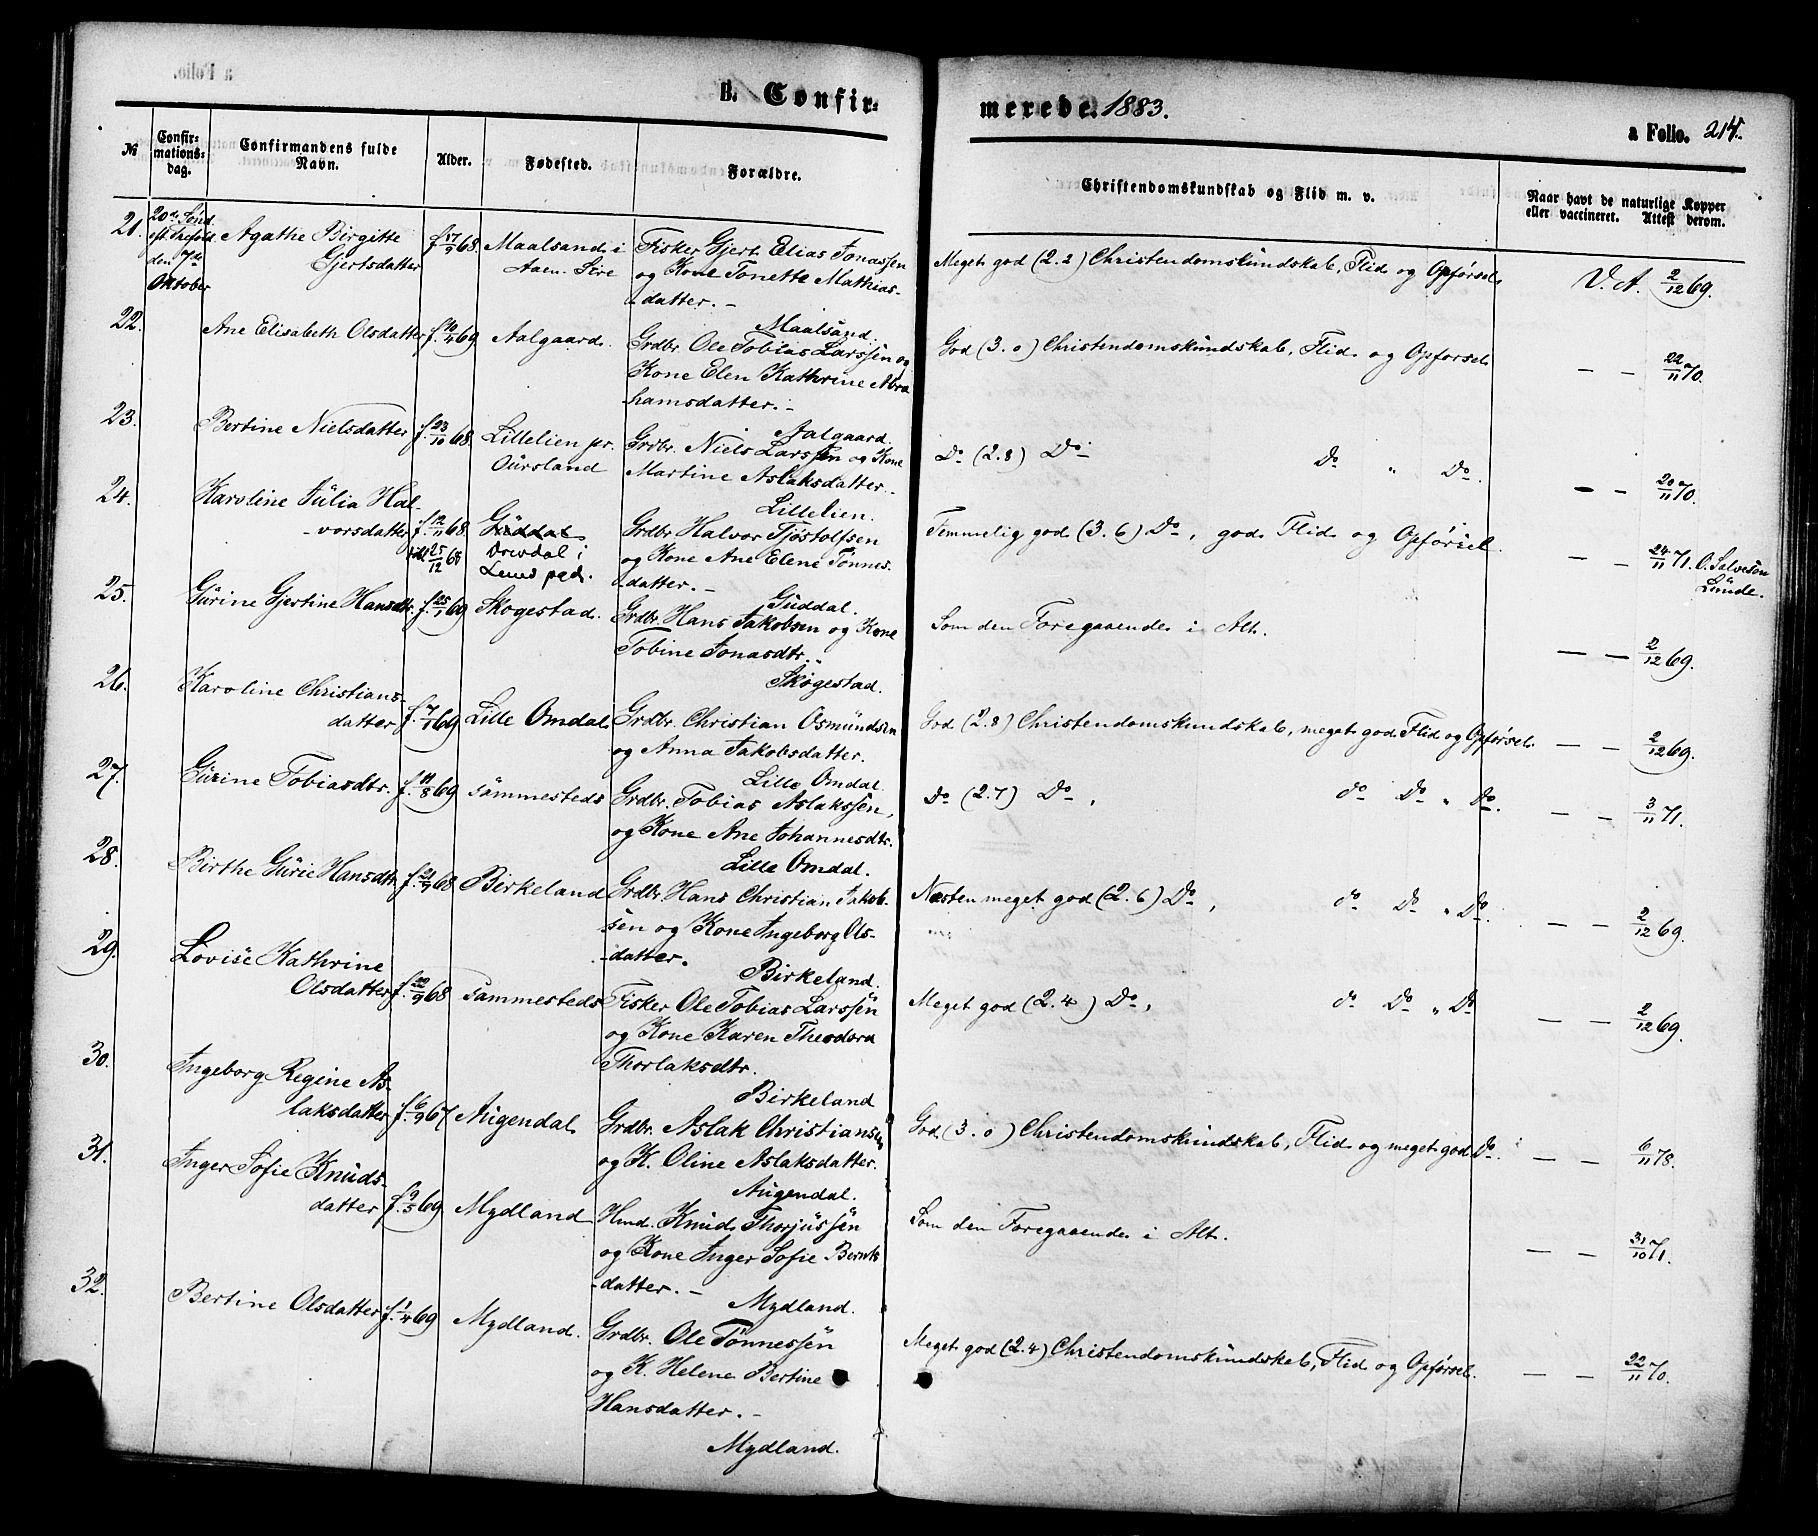 B. Confirmerede. 1883.
a Folio. 214.
№ Confirmationsdag. Confirmandens fulde Navn. Alder. Fødested. Forældre. Christendomskundskab og Flid m. v. Naar havt de naturlige Kopper eller vaccineret. Attest derom.
21. 20de Sønd. eft. Trefold. den 7de Oktober
Agathe Birgitte Gjertsdatter f. 17/9 68. Maalsand i Aaen-Sire
Fisker Gjert Elias Jonassen
og Kone Tonette Mathias-
datter. –
Maalsand.
Meget god (2.2) Christendomskundskab, Flid og Opførsel V. A. 2/12 69.
22. Ane Elisabeth Olsdatter f. 10/4 69 Aalgaard.
Grdbr. Ole Tobias Larssen og
Kone Elen Kathrine Abra
hamsdatter. –
Aalgaard.
God (3.0) Christendomskundskab, Flid og Opførsel — — 22/11 70.
23. Bertine Nielsdatter f. 23/10 68. Lillelien pr. Oursland
Grdbr. Niels Larssen og Kone
Martine Aslaksdatter. –
Lillelien.
Do (2.8) Do Do " Do. — — 20/11 70.
24. Karoline Julia Hal-
vorsdatter f. 12/11 68. 25/12 68
Guddal
Drevdal i
Lund pgd.
Grdbr. Halvor Tjøstolfsen
og Kone Ane Elene Tønnes-
datter. –
Guddal.
Temmelig god (3.6) Do, god Flid og Opførsel. — — 24/11 71. O. Salvesen
Lunde.
25. Gurine Gjertine Hansdtr. f. 25/1 69 Skogestad.
Grdbr. Hans Jakobsen og Kone
Tobine Jonasdtr.
Skogestad.
Som den Foregaaende i Alt. — — 2/12 69.
26. Karoline Christians-
datter f. 7/1 69 Lille Omdal
Grdbr. Christian Osmundsen
og Anna Jakobsdatter.
Lille Omdal.
God (2.8) Christendomskundskab, meget god Flid og Opførsel. — — 2/12 69.
27. Gurine Tobiasdtr. f. 11/8 69 sammesteds
Grdbr. Tobias Aslakssen,
og Kone Ane Johannesdtr.
Lille Omdal.
Do (2.7) Do, do Do " Do. — — 3/11 71.
28. Birthe Gurie Hansdtr f. 21/9 68 Birkeland
Grdbr. Hans Christian Jakob-
sen og Kone Ingeborg Ols-
datter.
Birkeland.
Næsten meget god (2.6) Do, do Do " Do. — — 2/12 69.
29. Lovise Kathrine
Olsdatter f. 22/9 68 sammesteds
Fisker Ole Tobias Larssen
og Kone Karen Theodora
Thorlaksdtr.
Birkeland
Meget god (2.4) Do, do Do " Do — — 2/12 69.
30. Ingeborg Regine As-
laksdatter f. 6/9 67 Augendal
Grdbr. Aslak Christiansen
og K. Oline Aslaksdatter.
Augendal.
God (3.0) Christendomskundskab, Flid og meget god Do. — — 6/11 78.
31. Inger Sofie Knuds-
datter f. 9/5 69 Mydland
Hmd. Knud Thorjussen
og Kone Inger Sofie Bernts
datter. –
Mydland.
Som den Foregaaende i Alt. — — 31/10 71.
32. Bertine Olsdatter f. 1/4 69 Mydland.
Grdbr. Ole Tønnessen
og K. Helene Bertine
Hansdatter. –
Mydland.
Meget god (2.4) Christendomskundskab, Flid og Opførsel. — — 22/11 70.